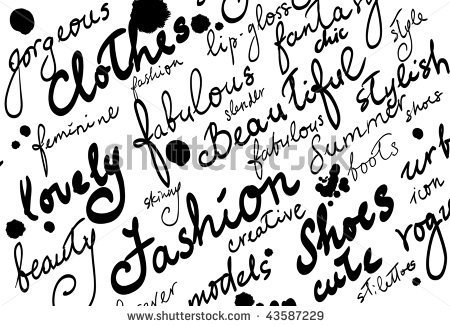 gorgeous
clothes
fashion
lip-gloss
fantasy
chic
style
feminine
fabulous
slender
Beautiful
stylish
lovely
skinny
fabulous
summer
shoes
boots
beauty
Fashion
creative
Shoes
icon
models
cute
stilettoes
shutterstock
www.shutterstock.com · 43587229